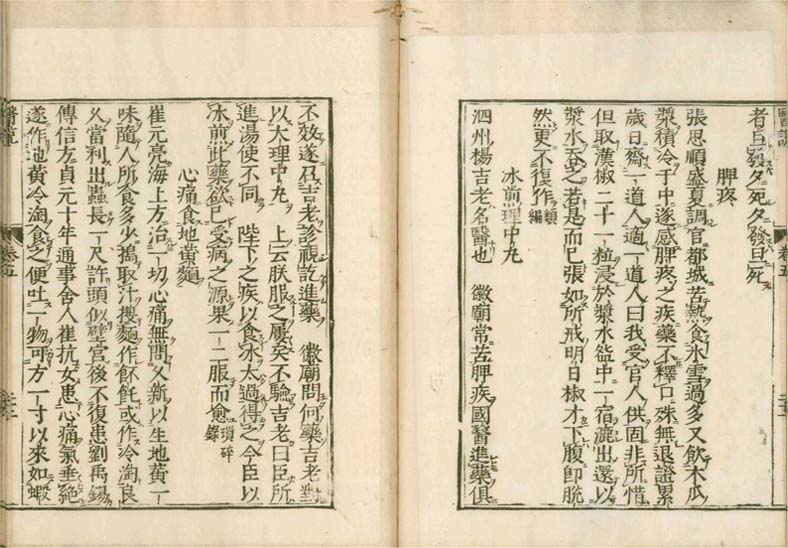 醫説
卷五
者旦發夕死夕發旦死
脾疼
張思順盛夏調官都城苦熱食冰雪過多又飲木瓜
漿積冷于中遂感脾疼之疾藥不釋口殊無退證累
歲日齋一道人適一道人曰我受官人供固非所惜
但取漢椒二十一粒浸於漿水盌中一宿漉出還以
漿水吞之若是而已張如所戒明日椒才下腹卽脫
然更不復作類編
冰煎理中丸
泗州楊吉老名醫也 徽廟常苦脾疾國醫進藥俱
不效遂召吉老診視訖進藥 徽廟問何藥吉老對
以大理中丸 上云朕服之屢矣不驗吉老曰臣所
進湯使不同 陛下之疾以食冰太過得之今臣以
冰煎此藥欲已受病之源果一二服而愈瑣碎錄
心痛食地黃麵
崔元亮海上方治一切心痛無問久新以生地黃一
味隨人所食多少擣取汁搜麵作飥或作冷淘良
久當利出蟲長一尺許頭似壁宮後不復患劉禹錫
傳信方貞元十年通事舍人崔抗女患心痛氣垂絕
遂作地黃冷淘食之便吐一物可方一寸以來如蝦
醫説
卷五